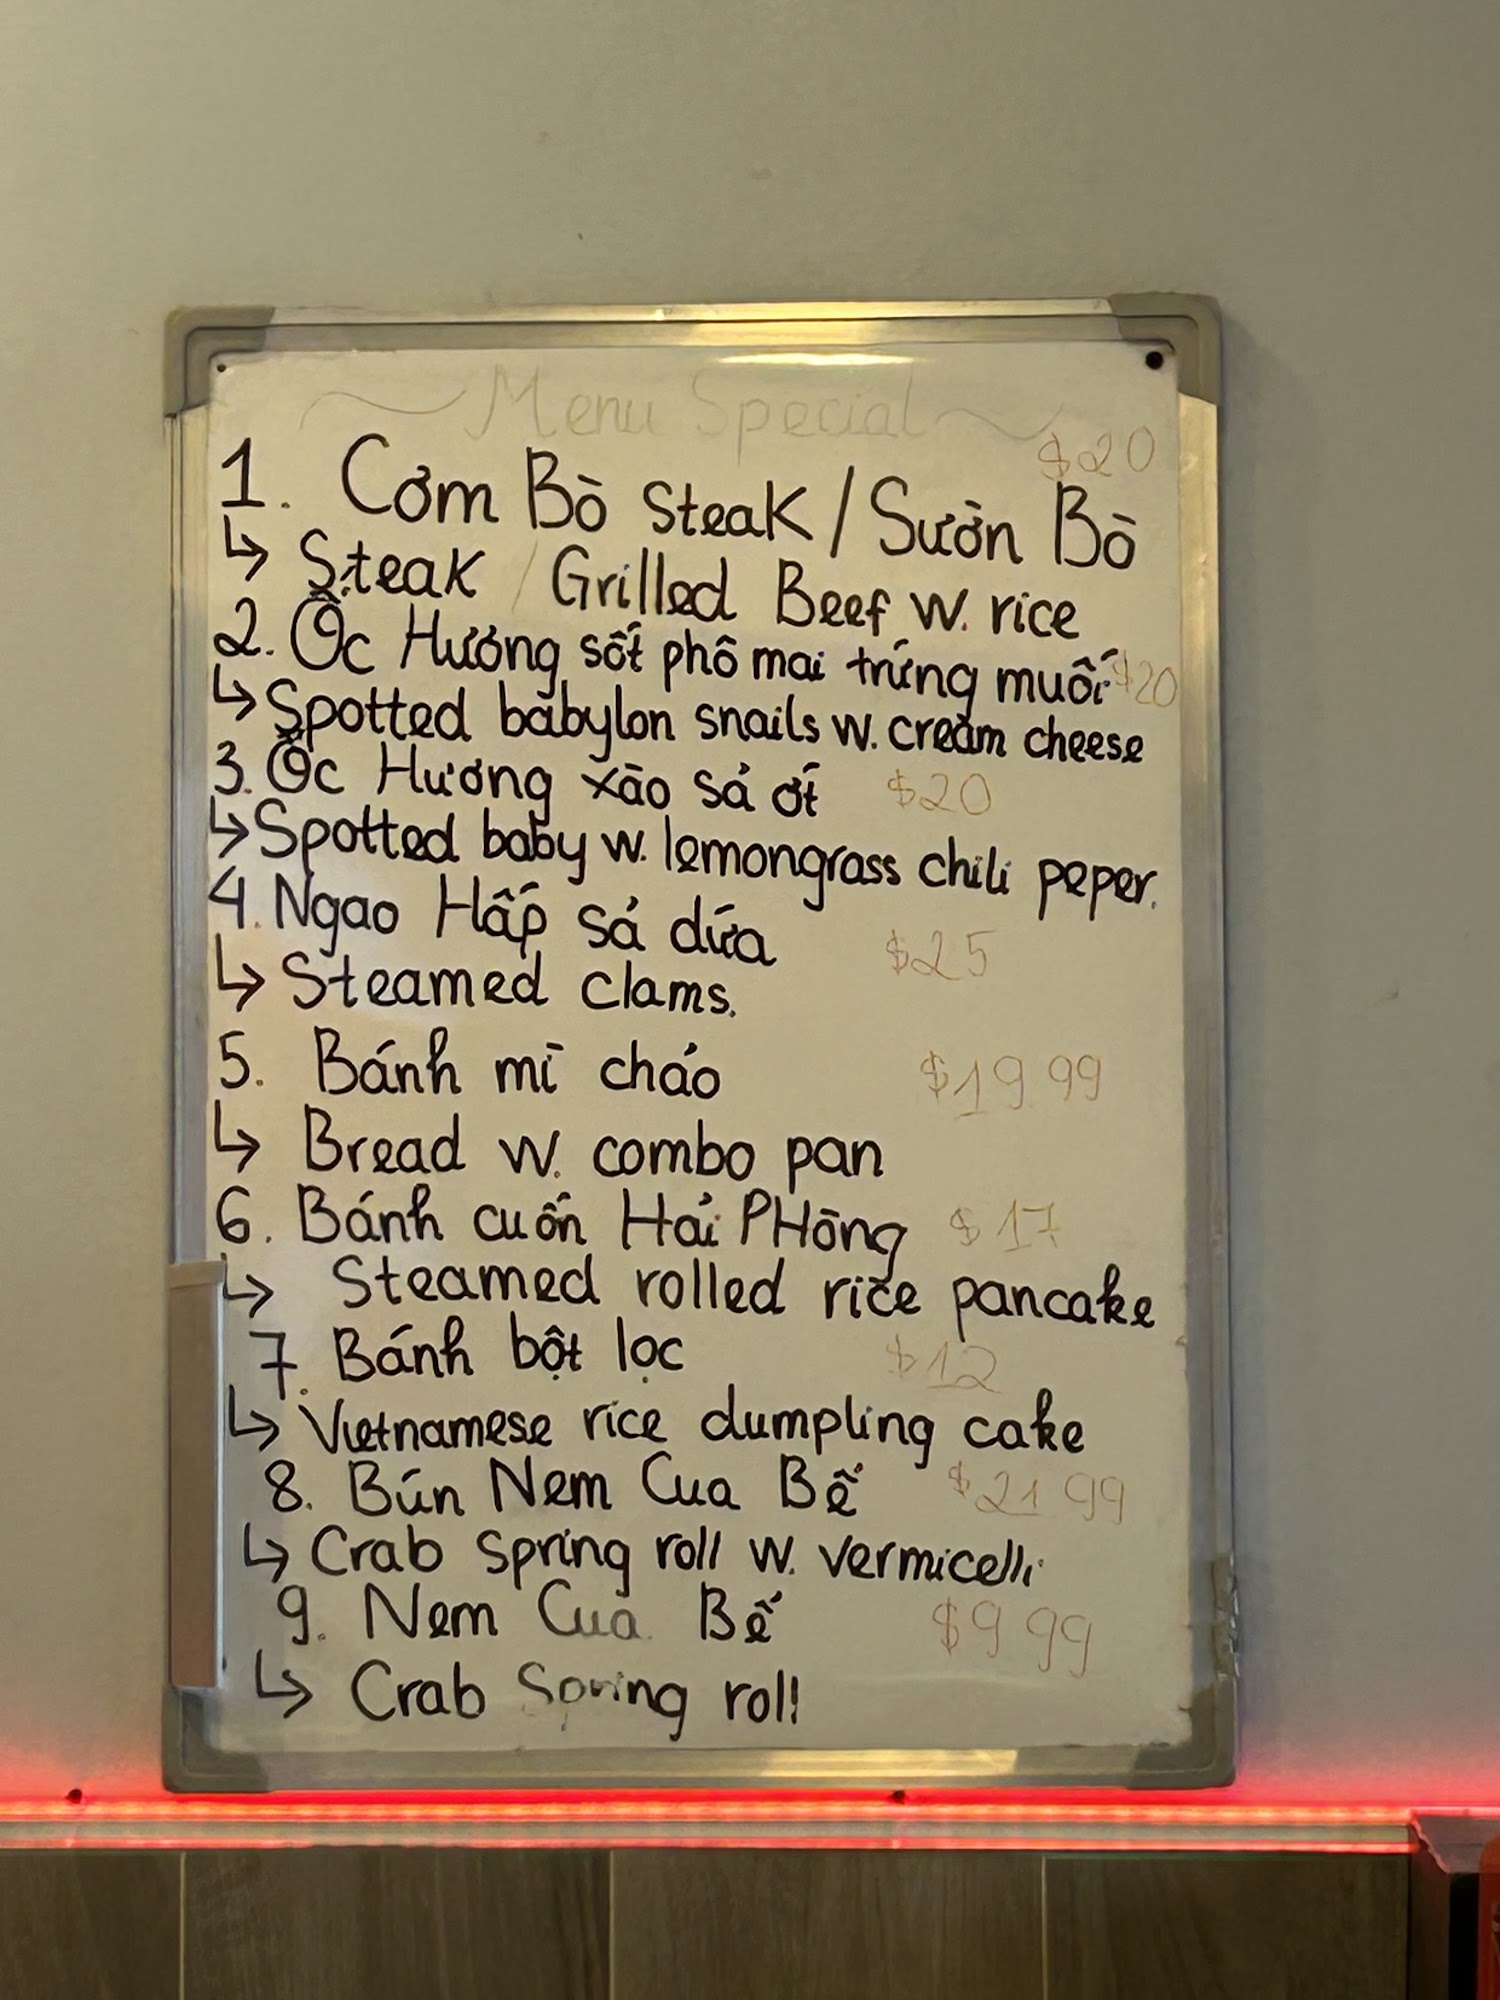 Menu Special
1. Cơm Bò Steak / Sườn Bò $20
↳ Steak / Grilled Beef w. rice
2. Ốc Hương sốt phô mai trứng muối $20
↳ Spotted babylon snails w. cream cheese
3. Ốc Hương xào sả ớt $20
↳ Spotted baby w. lemongrass chili peper.
4. Ngao Hấp sả dứa $25
↳ Steamed clams.
5. Bánh mì chảo $19.99
↳ Bread w. combo pan
6. Bánh cuốn Hải PHòng $17
↳ Steamed rolled rice pancake
7. Bánh bột lọc $12
↳ Vietnamese rice dumpling cake
8. Bún Nem Cua Bể $21.99
↳ Crab spring roll w. vermicelli
9. Nem Cua Bể $9.99
↳ Crab Spring roll